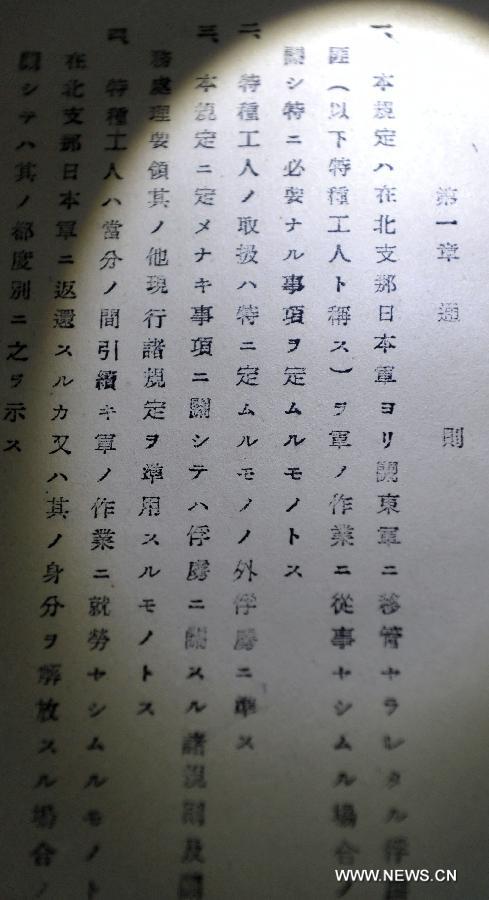 第一章 通則
一、本規定ハ在北支那日本軍ヨリ關東軍ニ移管セラレタル俘
匪(以下特種工人ト稱ス)ヲ軍ノ作業ニ從事セシムル場合ノ
關シ特ニ必要ナル事項ヲ定ムルモノトス
二、特種工人ノ取扱ハ特ニ定ムルモノノ外俘虜ニ準ス
三、本規定ニ定メナキ事項ニ關シテハ俘虜ニ關スル諸規則及
務處理要領其ノ他現行諸規定ヲ準用スルモノトス
四、特種工人ハ當分ノ間引續キ軍ノ作業ニ就勞セシムルモノト
在北支那日本軍ニ返還スルカ又ハ其ノ身分ヲ解放スル場合ノ
關シテハ其ノ都度別ニ之ヲ示ス
WWW.NEWS.CN